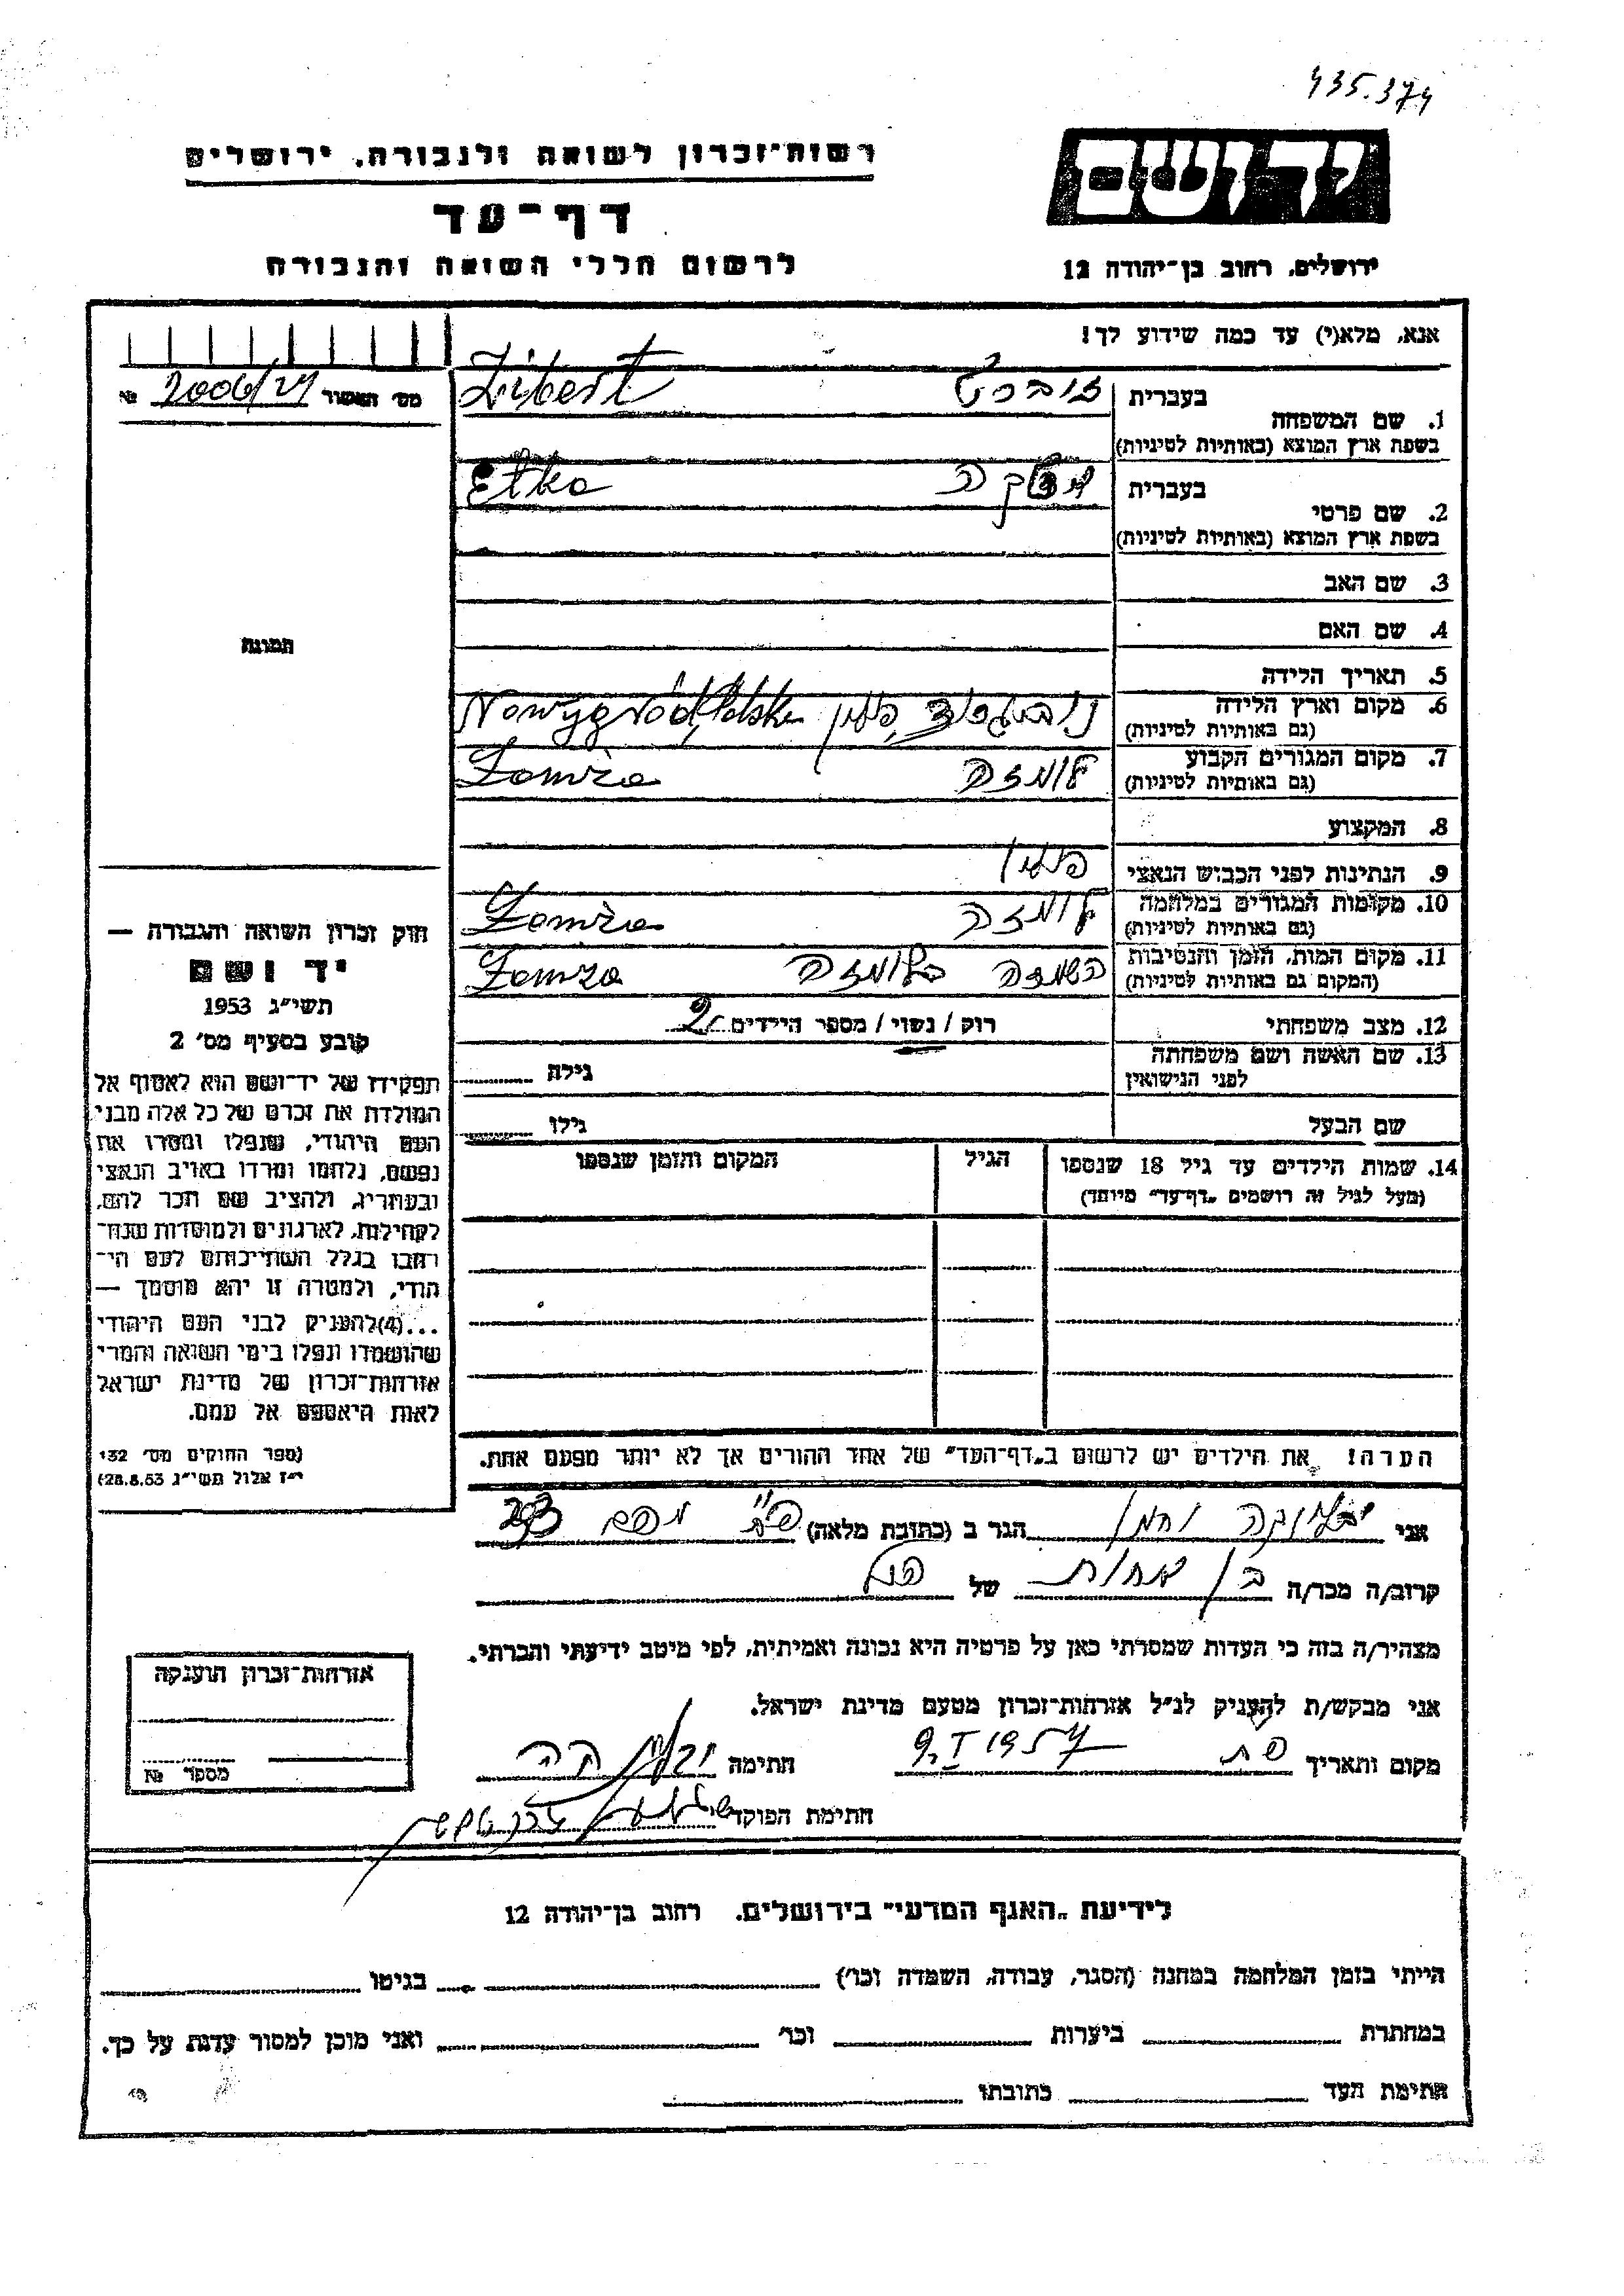 435.374
יד ושם
רשות־זכרון לשואה ולגבורה, ירושלים
דף־עד
לרשום חללי השואה והגבורה
ירושלים, רחוב בן־יהודה 12
אנא, מלא(י) עד כמה שידוע לך!
מס׳ האשור 2006/24 №
1. שם המשפחה
בעברית
Zibert
בשפת ארץ המוצא (באותיות לטיניות)
2. שם פרטי
בעברית
Etka
בשפת ארץ המוצא (באותיות לטיניות)
3. שם האב
4. שם האם
5. תאריך הלידה
6. מקום וארץ הלידה
(גם באותיות לטיניות)
פולין Nowygród, Polska
7. מקום המגורים הקבוע
(גם באותיות לטיניות)
לומזה Łomża
8. המקצוע
9. הנתינות לפני הכבוש הנאצי
פולין
10. מקומות המגורים במלחמה
(גם באותיות לטיניות)
לומזה Łomża
11. מקום המות, הזמן והנסיבות
(המקום גם באותיות לטיניות)
בלומזה Łomża
12. מצב משפחתי
רוק / נשוי / מספר הילדים 2
13. שם האשה ושם משפחתה
לפני הנישואין
גילה
שם הבעל
גילו
14. שמות הילדים עד גיל 18 שנספו
(מעל לגיל זה רושמים „דף־עד״ מיוחד)
הגיל
המקום והזמן שנספו
הערה! את הילדים יש לרשום ב„דף־העד״ של אחד ההורים אך לא יותר מפעם אחת.
תמונה
חוק זכרון השואה והגבורה —
יד ושם
תשי״ג 1953
קובע בסעיף מס׳ 2
תפקידו של יד־ושם הוא לאסוף אל
המולדת את זכרם של כל אלה מבני
העם היהודי, שנפלו ומסרו את
נפשם, נלחמו ומרדו באויב הנאצי
ובעוזריו, ולהציב שם וזכר להם,
לקהילות, לארגונים ולמוסדות שנח־
רבו בגלל השתייכותם לעם הי־
הודי, ולמטרה זו יהא מוסמך —
...(4) להעניק לבני העם היהודי
שהושמדו ונפלו בימי השואה והמרי
אזרחות־זכרון של מדינת ישראל
לאות היאספם אל עמם.
(ספר החוקים מס׳ 132
י״ז אלול תשי״ג 28.8.53)
אני
הגר ב (כתובת מלאה) פ״ת
קרוב/ה מכר/ה בן אחות של הנ״ל
מצהיר/ה בזה כי העדות שמסרתי כאן על פרטיה היא נכונה ואמיתית, לפי מיטב ידיעתי והכרתי.
אני מבקש/ת להעניק לנ״ל אזרחות־זכרון מטעם מדינת ישראל.
מקום ותאריך פת 9.I 1957 חתימה
חתימת הפוקד
אזרחות־זכרון הוענקה
מספר №
לידיעת „האגף המדעי״ בירושלים, רחוב בן־יהודה 12
הייתי בזמן המלחמה במחנה (הסגר, עבודה, השמדה וכו׳) בגיטו
במחתרת ביערות וכו׳ ואני מוכן למסור עדות על כך.
חתימת העד כתובתו